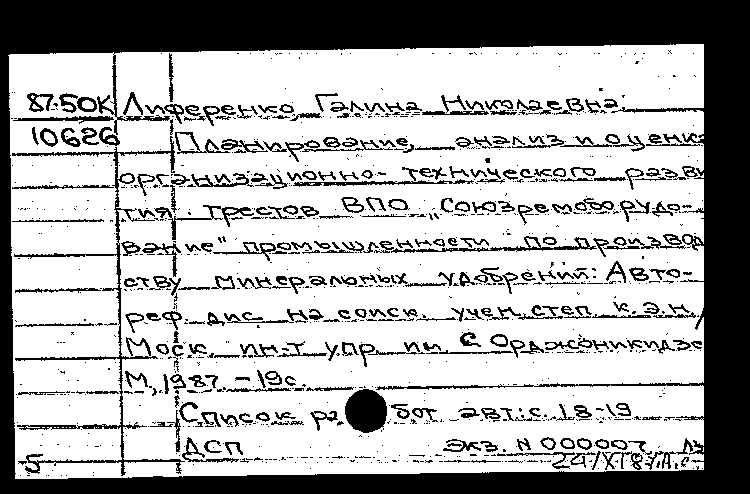 87-50К Лиференко, Галина Николаевна.
10626 Планирование, анализ и оценка
организационно-технического разви
тия трестов ВПО „Союзремоборудо-
вание" промышленности по производ
ству минеральных удобрений: Авто-
реф. дис. на соиск. учен. степ. к.э.н./
Моск. ин-т упр. им. С Орджоникидзе
М., 1987. – 19с.
Список работ авт.: с. 18-19
ДСП экз. N 000007